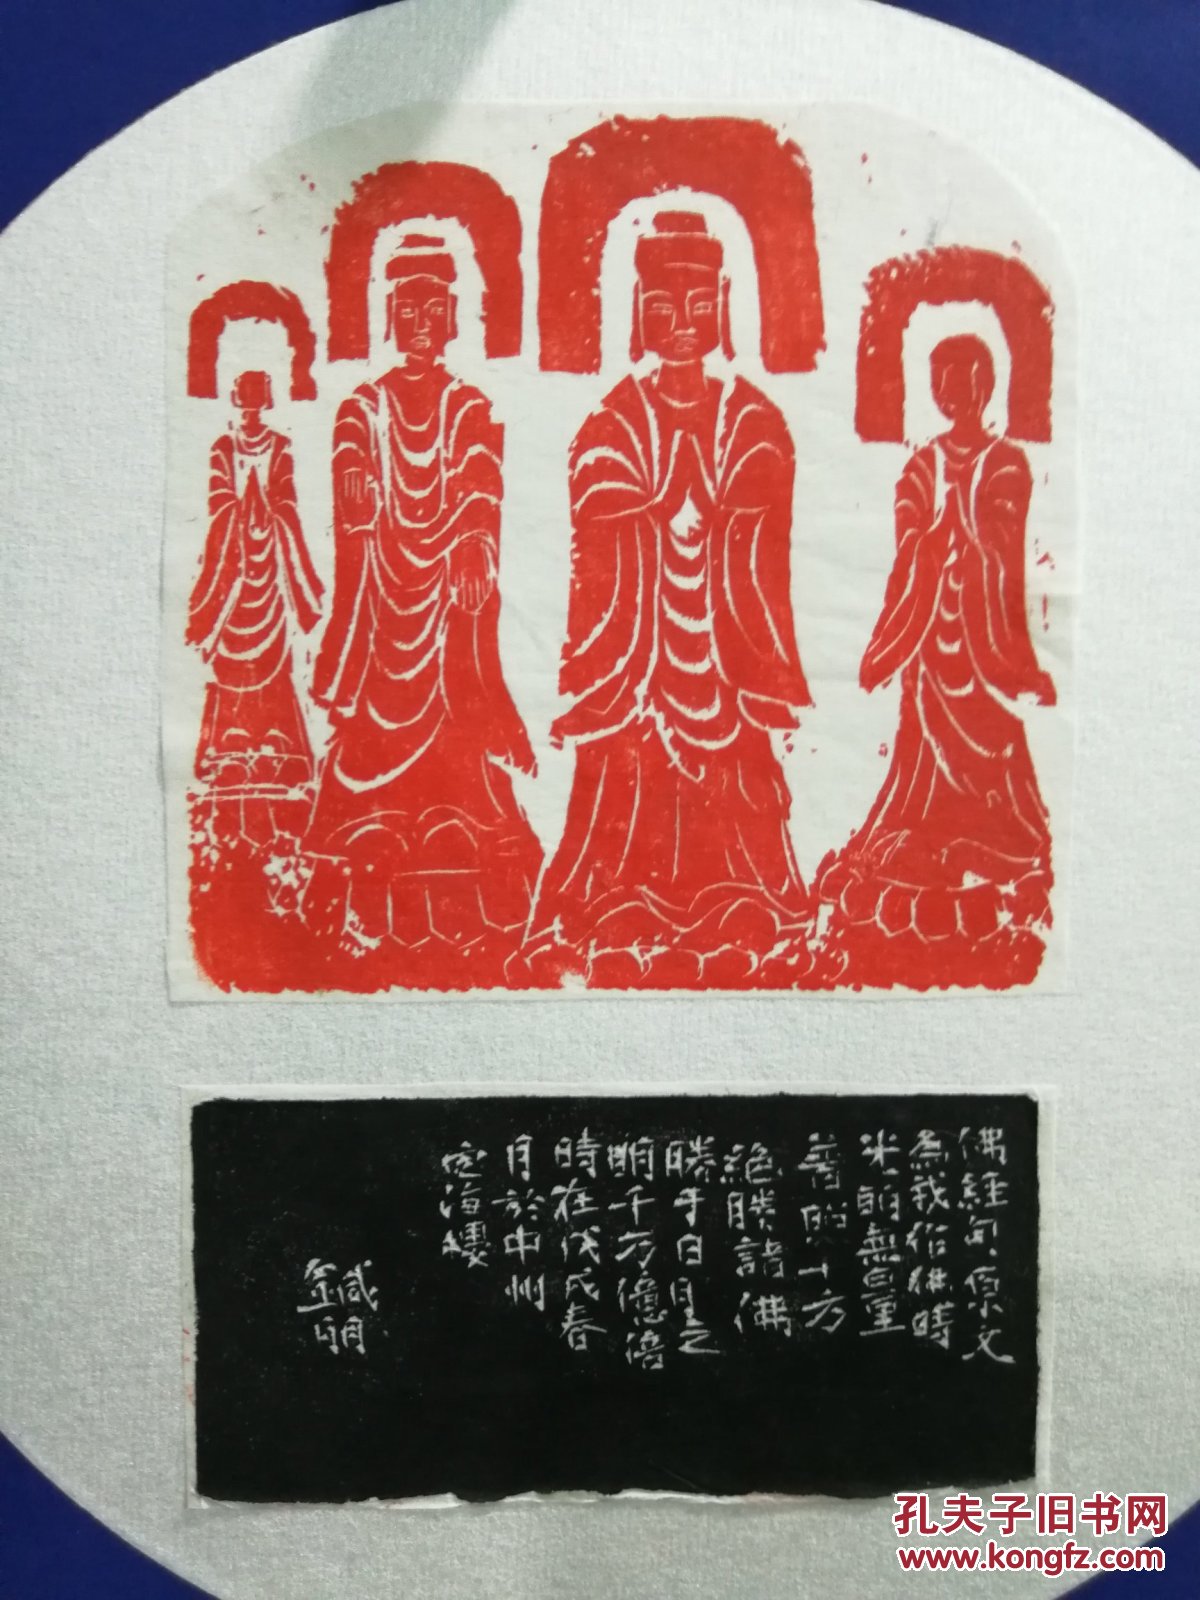 佛經句原文
為我作佛時
光明無量
普照十方
絕勝諸佛
勝于日月之
明千万億倍
時在戊戌春
月於中州
海樓
鍼明
孔夫子旧书网
www.kongfz.com